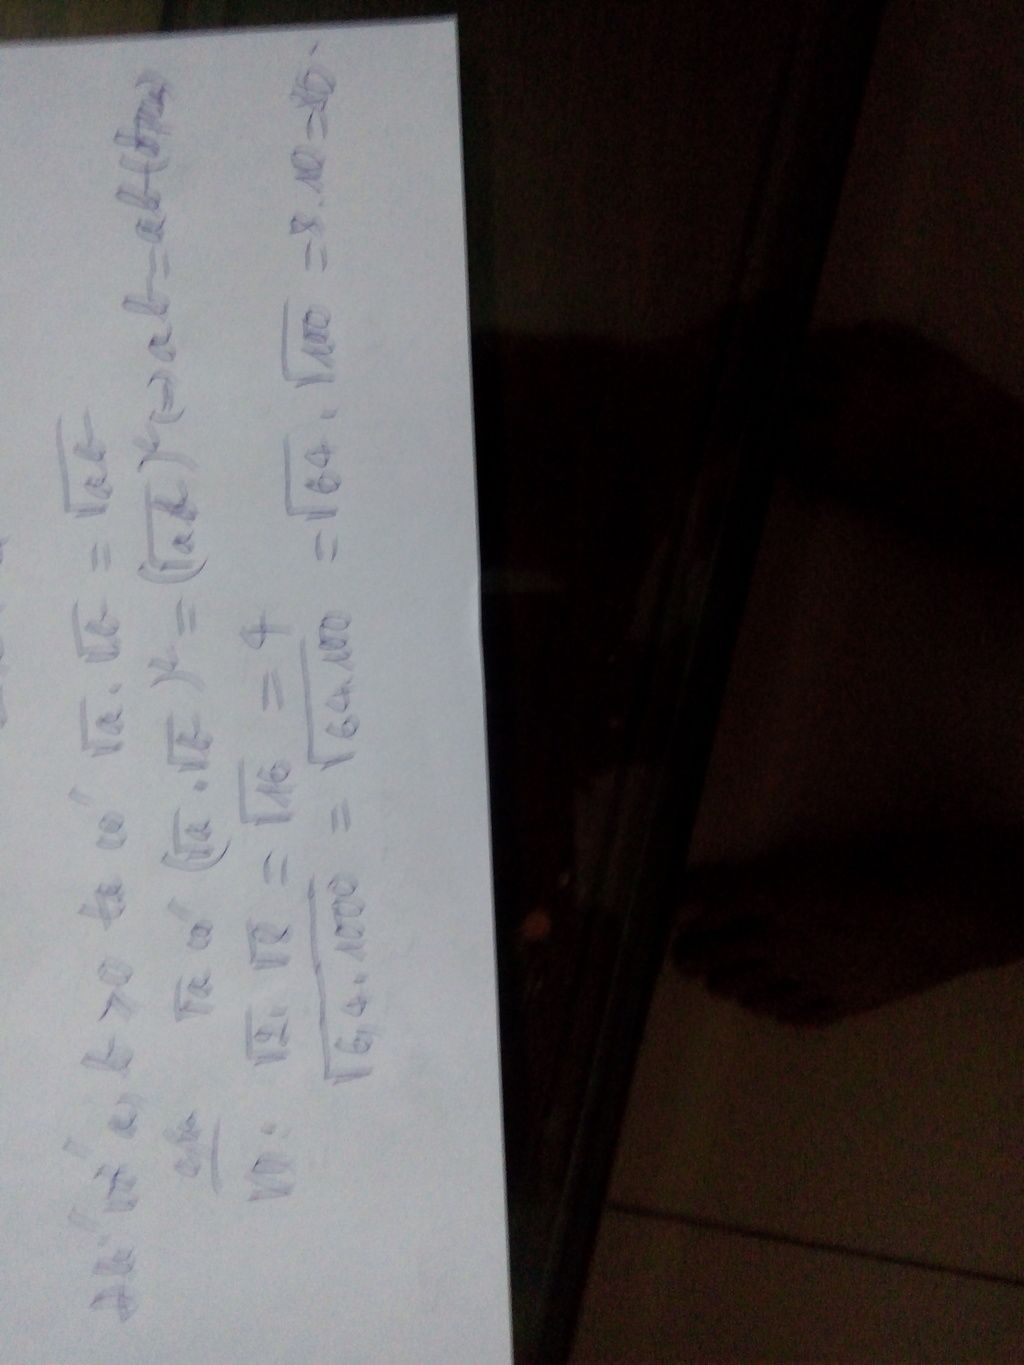 với a, b > 0 ta có √a . √b = √ab
Ta có (√a . √b)² = (√ab)² (=) ab = ab (
VD: √2 . √8 = √16 = 4
√6,4 . 1000 = √64.100 = √64 . √100 = 8 . 10 = 80.